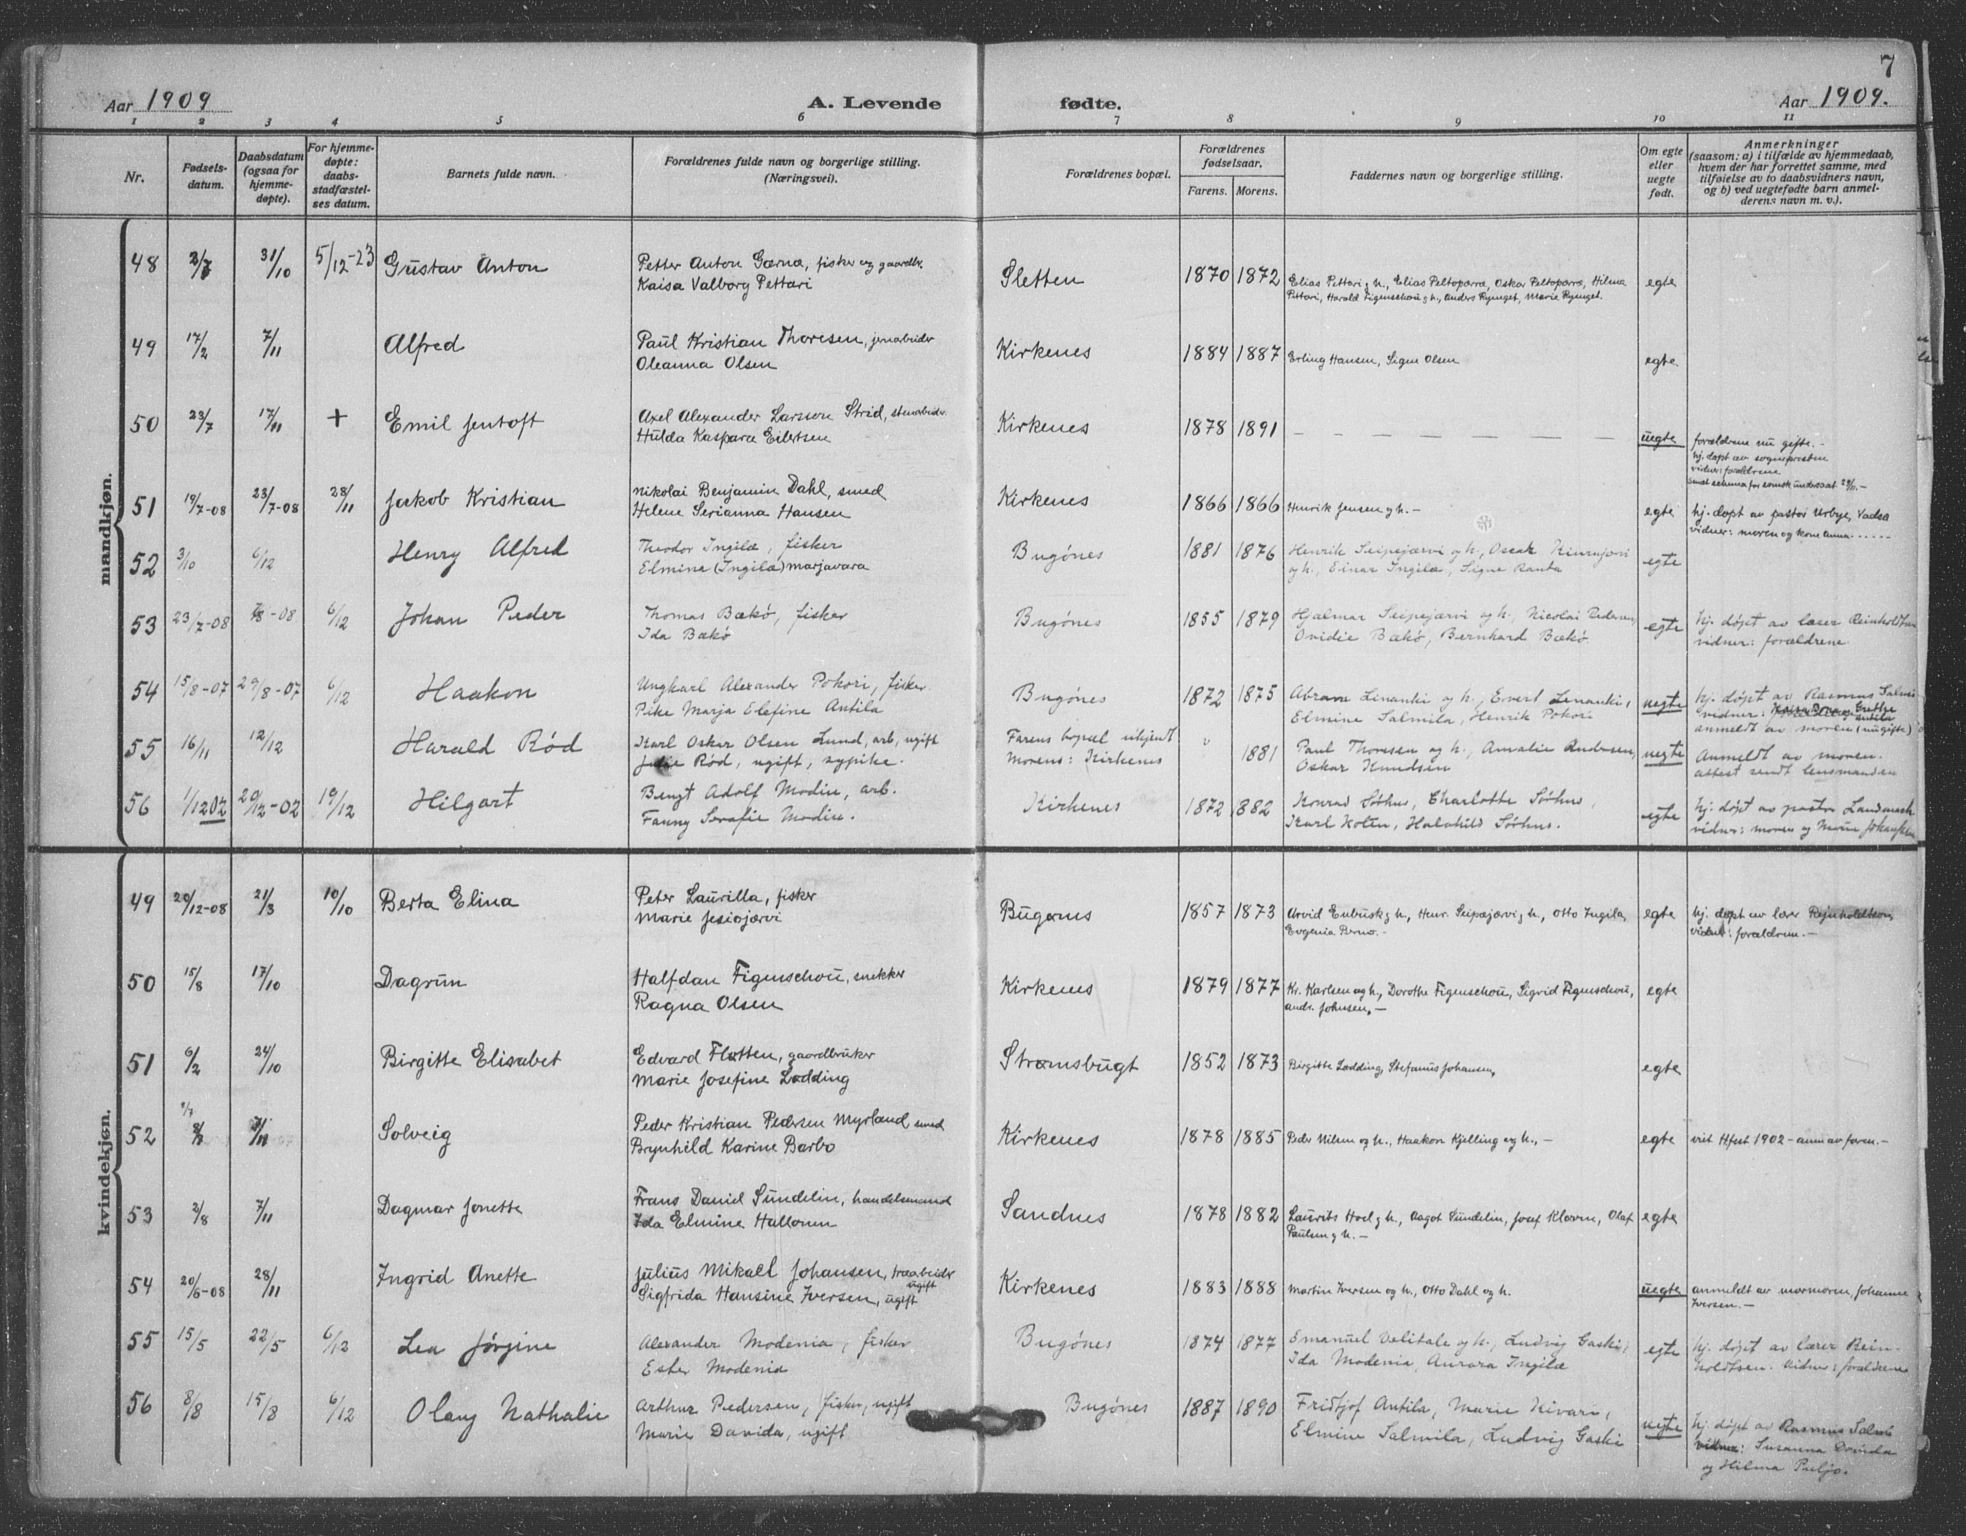 7
Aar 1909 A. Levende fødte. Aar 1909.
1 2 3 4 5 6 7 8 9 10 11
Nr. Fødselsdatum. Daabsdatum (ogsaa for hjemmedøpte). For hjemmedøpte: daabsstadfæstelses datum. Barnets fulde navn. Forældrenes fulde navn og borgerlige stilling. (Næringsvei). Forældrenes bopæl. Forældrenes fødselsaar. Farens. Morens. Faddernes navn og borgerlige stilling. Om egte eller uegte født. Anmerkninger (saasom: a) i tilfælde av hjemmedaab, hvem der har forrettet samme, med tilføielse av to daabsvidners navn, og b) ved uegtefødte barn anmelderens navn m. v.).
mandkjøn.
48 2/7 31/10 5/12-23 Gustav Anton Petter Anton Gærnæ, fisker og gaardbr. Sletten 1870 1872 Elias Pettari g h., Elias Peltoparræ, Oskar Peltoparra, Hilma egte
Kaisa Valborg Pettari Pettari, Harald Figenschou g h., Anders Rynget, Marie Rynget.
49 17/2 7/11 Alfred Paul Kristian Thoresen, jernarbeider Kirkenes 1884 1887 Erling Hansen, Signe Olsen egte
Oleanna Olsen
50 23/7 17/11 + Emil Jentoft Axel Alexander Larsson Strid, stenarbeider Kirkenes 1878 1891 — — — — uegte forældrene nu gifte. -
Hulda Kaspara Eilertsen hj. døpt av sognepresten
vidner: forældrene
51 19/7-08 23/7-08 28/11 Jakob Kristian Nikolai Benjamin Dahl, smed Kirkenes 1866 1866 Henrik Jensen g h. - egte hj. døpt av pastor Urbye, Vadsø
Helene Serianna Hansen vidner: moren og kone Anna
52 3/10 6/12 Henry Alfred Theodor Ingilæ, fisker Bugønes 1881 1876 Henrik Seipejærvi og h., Oscar egte
Elmina (Ingilæ) Marjavara og h., Einar Ingilæ, Signe Ranta
53 23/7-08 7/8-08 6/12 Johan Peder Thomas Bækø, fisker Bugønes 1855 1879 Hjalmar Seipejærvi og h., Nicolai Pedersen, egte hj. døpt av lærer Reinholdtsen
Ida Bækø Ovidie Bækø, Bernhard Bækø. vidner: forældrene
54 15/8-07 29/8-07 6/12 Haakon Ungkarl Alexander Pokori, fisker Bugønes 1872 1875 Abram Linanki og h., Evert Linanki, uegte hj. døpt av Rasmus Salmi
Pike Marja Elefine Antila Elmine Salmila, Henrik Pokori vidner:
anmeldt av moren (ungifte)
55 16/11 12/12 Harald Rød Karl Oskar Olsen Lund, arb, ugift Farens bopæl ukjent 1881 Paul Thoresen og h., Amalie Andersen, uegte Anmeldt av moren.
Julie Rød, ugift, sypike. Morens: Kirkenes Oskar Knudsen attest sendt lensmanden
56 1/12 02 29/12-02 19/12 Hilgart Bengt Adolf Modin, arb. Kirkenes 1872 882 Konrad Sørhus, Charlotte Sørhus, egte hj. døpt av pastor Landmark
Fanny Serafie Modin. Karl Holen, Halvhild Sørhus. vidner: moren og Marie Johansen
kvindekjøn.
49 29/12-08 21/3 10/10 Berta Elina Peter Laurilla, fisker Bugønes 1857 1873 Arvid Enbusk g h., Henr. Seipæjærvi g h., Otto Ingila, egte hj. døpt av lærer Rejnholdtsen,
Marie Jesiojærvi Evgenia Perno. - vidner: forældrene. -
50 15/8 17/10 Dagrun Halfdan Figenschou, snekker Kirkenes 1879 1877 Kr. Karlsen og h., Dorothe Figenschou, Sigrid Figenschou, egte
Ragna Olsen Andr. Johnsen, -
51 6/2 24/10 Birgitte Elisabet Edvard Flotten, gaardbruker Strømsbugt 1852 1873 Birgitte Lødding, Stefanus Johansen, egte
Marie Josefine Lødding
52 7/11 Solveig Peder Kristian Pedersen Myrland smed Kirkenes 1878 1885 Peder Nilsen og h., Haakon Kjelling og h., - egte viet Hfest 1902 - anm av faren. -
Brynhild Karine Barbo
53 2/8 7/11 Dagmar Jonette Frans Daniel Sundelin, handelsmand Sandnes 1878 1882 Laurits Hoel g h., Aagot Sundelin, Josef Kloven, Olaf egte
Ida Elmine Halloren Paulsen g h. -
54 20/6-08 28/11 Ingrid Anette Julius Mikael Johansen, træarbeider ugift Kirkenes 1883 1888 Martin Iversen og h., Otto Dahl og h. uegte anmeldt av mormoren, Johanne
Sigfrida Hansine Iversen, ugift Iversen. -
55 15/5 22/5 6/12 Lea Jørgine Alexander Modenia, fisker Bugønes 1874 1877 Emanuel Delitale og h., Ludvig Gaski, egte hj. døpt av lærer Rein-
Ester Modenia Ida Modenia, Aurora Ingilæ holdtsen. vidner: forældrene
56 8/8 15/8 6/12 Olang Nathalie Arthur Pedersen, fisker, ugift Bugønes 1887 1890 Fridtjof Antila, Marie Kivari, uegte hj. døpt av Rasmus Salmi
Marie Davida, ugift Elmine Salmila, Ludvig Gaski vidner: Susanna Davida
og Hilma Puljo.